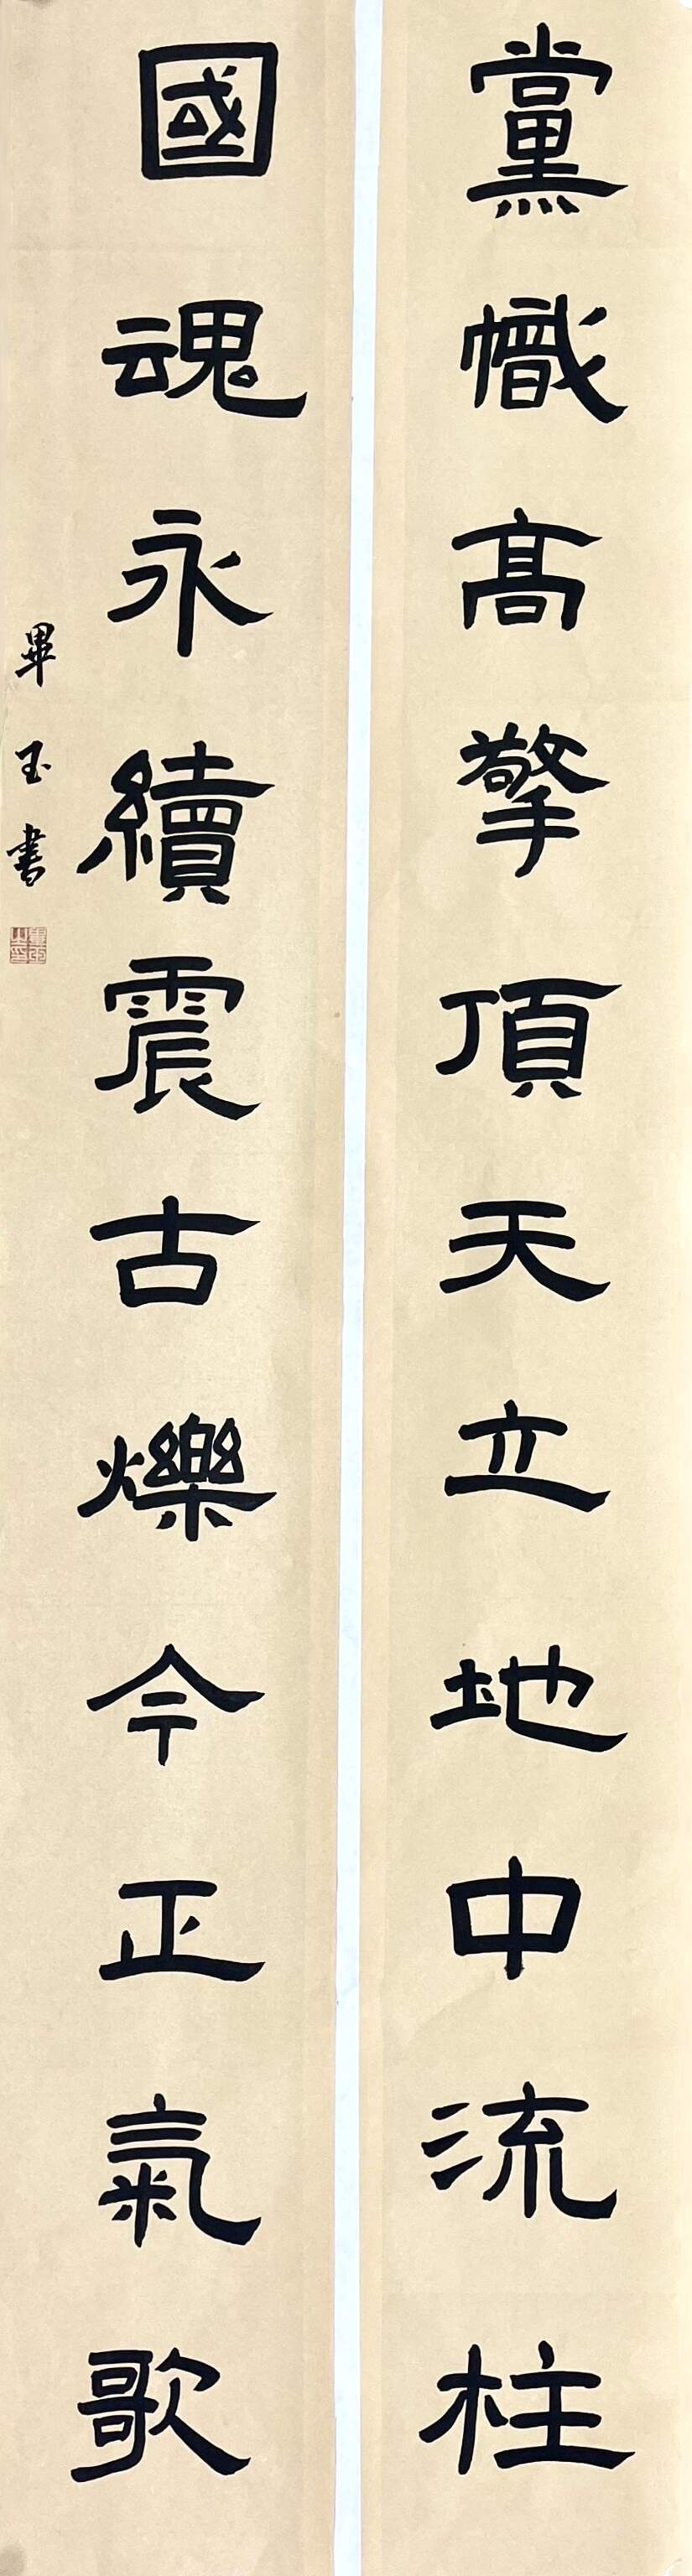 黨幟高擎頂天立地中流柱
國魂永續震古爍今正氣歌
畢玉書